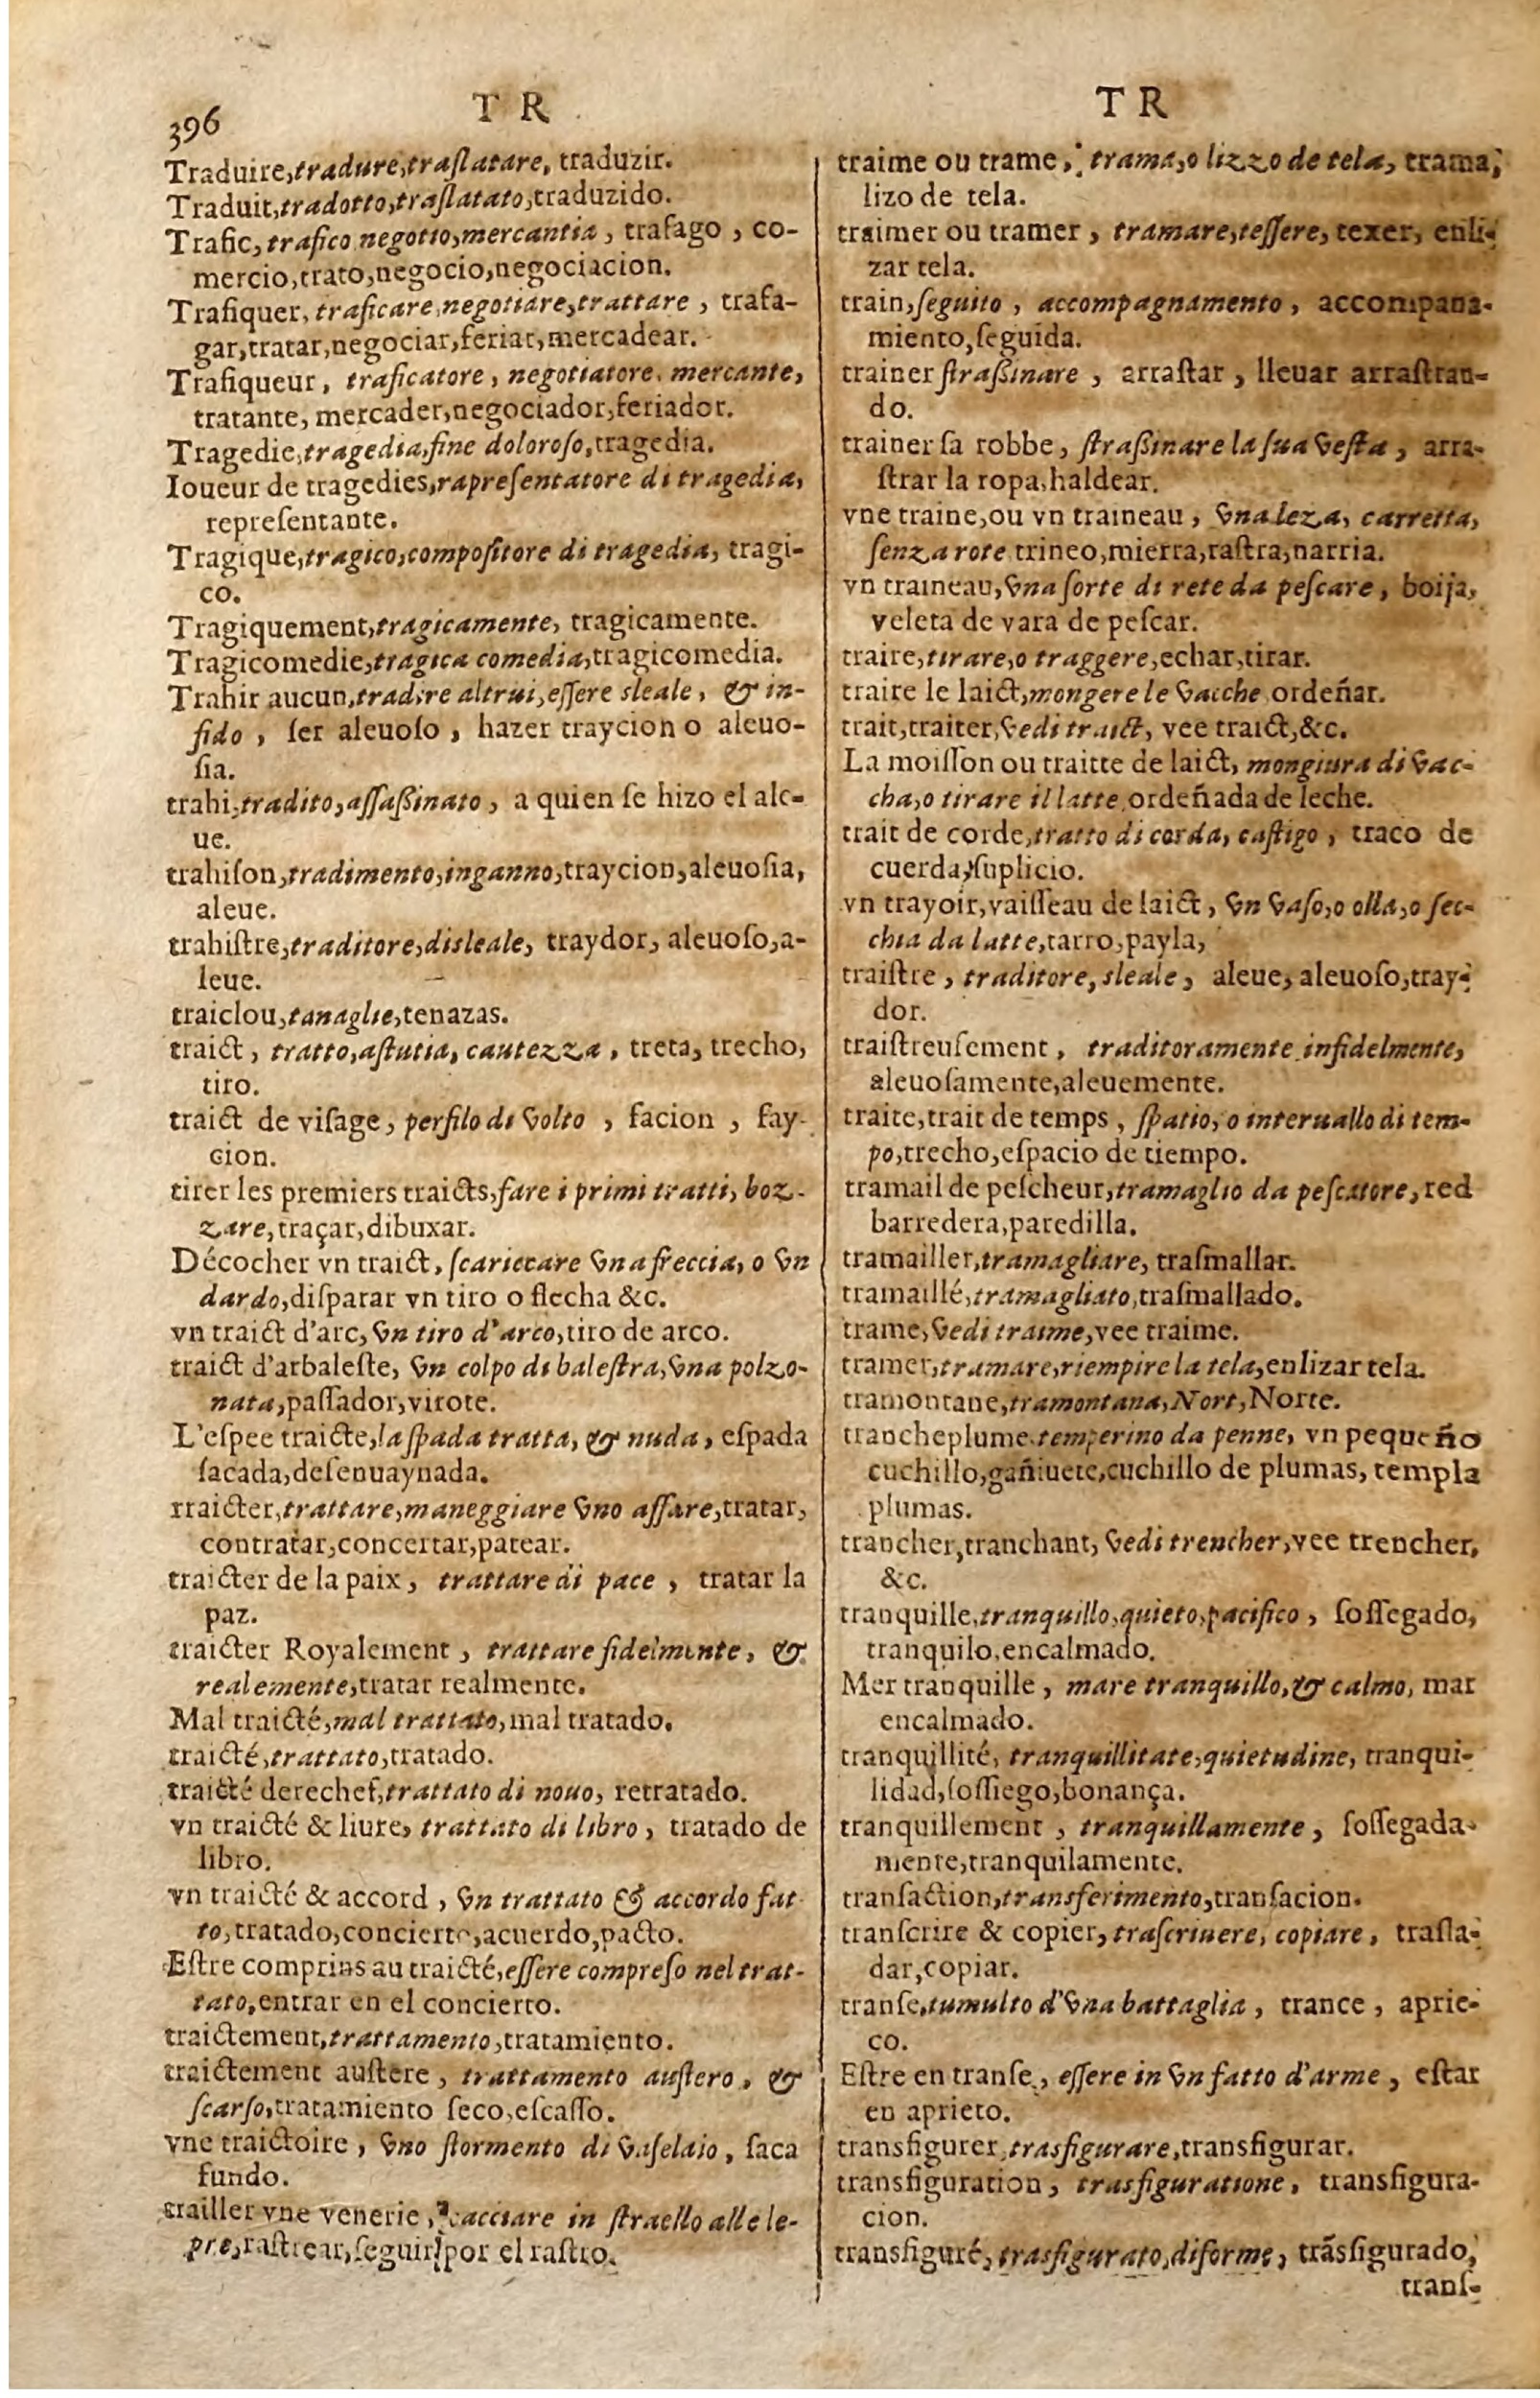 396
T R
Traduire,tradure,traſlatare, traduzir.
Traduit,tradotto,traſlatato,traduzido.
Trafic, trafico negotio,mercantia, trafago, co-
mercio,trato,negocio,negociacion.
Trafiquer, traficare,negotiare,trattare, trafa-
gar,tratar,negociar,feriar,mercadear.
Trafiqueur, traficatore, negotiatore, mercante,
tratante, mercader,negociador,feriador.
Tragedie,tragedia,fine doloroſo,tragedia.
Ioueur de tragedies,rapreſentatore di tragedia,
repreſentante.
Tragique,tragico,compoſitore di tragedia, tragi-
co.
Tragiquement,tragicamente, tragicamente.
Tragicomedie,tragica comedia,tragicomedia.
Trahir aucun,tradire altrui,eſſere sleale, & in-
fido, ſer aleuoſo, hazer traycion o aleuo-
ſia.
trahi,tradito,aſſaßinato, a quien ſe hizo el ale-
ue.
trahiſon,tradimento,inganno,traycion,aleuoſia,
aleue.
trahiſtre,traditore,disleale, traydor, aleuoſo,a-
leue.
traiclou,tanaglie,tenazas.
traict, tratto,aſtutia, cautezza, treta, trecho,
tiro.
traict de viſage, perfilo di volto, facion, fay-
cion.
tirer les premiers traicts,fare i primi tratti, boz-
zare,traçar,dibuxar.
Décocher vn traict, ſcariccare vna freccia, o vn
dardo,diſparar vn tiro o flecha &c.
vn traict d'arc, vn tiro d'arco,tiro de arco.
traict d'arbaleſte, vn colpo di baleſtra,vna polzo-
nata,paſſador,virote.
L'eſpee traicte,la ſpada tratta, & nuda, eſpada
ſacada,deſenuaynada.
traicter,trattare,maneggiare vno affare,tratar,
contratar,concertar,patear.
traicter de la paix, trattare di pace, tratar la
paz.
traicter Royalement, trattare fidelmente, &
realemente,tratar realmente.
Mal traicté,mal trattato,mal tratado.
traicté,trattato,tratado.
traicté derechef,trattato di nouo, retratado.
vn traicté & liure, trattato di libro, tratado de
libro.
vn traicté & accord, vn trattato & accordo fat-
to,tratado,concierto,acuerdo,pacto.
Eſtre comprins au traicté,eſſere compreſo nel trat-
tato,entrar en el concierto.
traictement,trattamento,tratamiento.
traictement auſtere, trattamento auſtero, &
ſcarſo,tratamiento ſeco,eſcaſſo.
vne traictoire, vno ſtormento di vaſelaio, ſaca
fundo.
trailler vne venerie, cacciare in ſtraello alle le-
pre,raſtrear,ſeguir por el raſtro.
T R
traime ou trame, trama,o lizzo de tela, trama,
lizo de tela.
traimer ou tramer, tramare,teſſere, texer, enli-
zar tela.
train,ſeguito, accompagnamento, accompana-
miento,ſeguida.
trainer ſtraßinare, arraſtar, lleuar arraſtran-
do.
trainer ſa robbe, ſtraßinare la ſua veſta, arra-
ſtrar la ropa,haldear.
vne traine,ou vn traineau, vna leza, carretta,
ſenza rote trineo,mierra,raſtra,narria.
vn traineau,vna ſorte di rete da peſcare, boija,
veleta de vara de peſcar.
traire,tirare,o traggere,echar,tirar.
traire le laict,mongere le vacche ordeñar.
trait,traiter,vedi traict, vee traict,&c.
La moiſſon ou traitte de laict, mongiura di vac-
cha,o tirare il latte,ordeñada de leche.
trait de corde,tratto di corda, caſtigo, traco de
cuerda,ſuplicio.
vn trayoir,vaiſſeau de laict, vn vaſo,o olla,o ſec-
chia da latte,tarro,payla,
traiſtre, traditore, sleale, aleue, aleuoſo,tray-
dor.
traiſtreuſement, traditoramente infidelmente,
aleuoſamente,aleuemente.
traite,trait de temps, ſpatio, o interuallo di tem-
po,trecho,eſpacio de tiempo.
tramail de peſcheur,tramaglio da peſcatore,red
barredera,paredilla.
tramailler,tramagliare, traſmallar.
tramaillé,tramagliato,traſmallado.
trame,vedi traime,vee traime.
tramer,tramare,riempire la tela,enlizar tela.
tramontane,tramontana,Nort,Norte.
trancheplume.temperino da penne, vn pequeño
cuchillo,gañiuete,cuchillo de plumas, templa
plumas.
trancher,tranchant, vedi trencher,vee trencher,
&c.
tranquille,tranquillo,quieto,pacifico, ſoſſegado,
tranquilo,encalmado.
Mer tranquille, mare tranquillo,& calmo, mar
encalmado.
tranquillité, tranquillitate,quietudine, tranqui-
lidad,ſoſſiego,bonança.
tranquillement, tranquillamente, ſoſſegada-
mente,tranquilamente.
tranſaction,transferimento,tranſacion.
tranſcrire & copier,traſcriuere, copiare, traſla-
dar,copiar.
tranſe,tumulto d'vna battaglia, trance, aprie-
co.
Eſtre en tranſe, eſſere in vn fatto d'arme, eſtar
en aprieto.
transfigurer,trasfigurare,transfigurar.
transfiguration, trasfiguratione, transfigura-
cion.
transfiguré, trasfigurato,diforme, trãsfigurado,
tranſ-